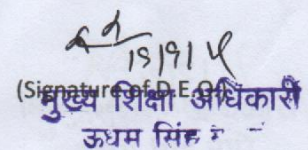 19/9/14
(Signature of D.E.O.)
मुख्य शिक्षा अधिकारी
ऊधम सिंह